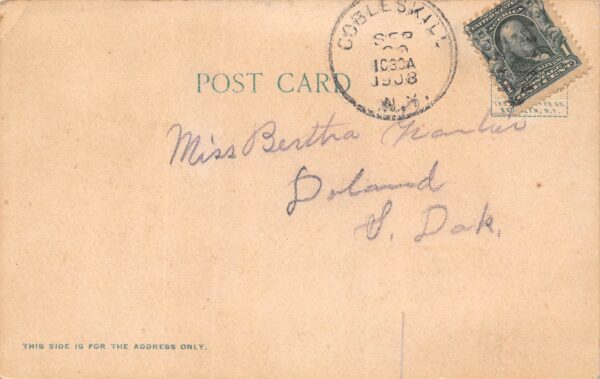 COBLESKILL
SEP
1030A
1908
N.Y.
1
1
POST CARD
Miss Bertha
Doland
S. Dak.
THIS SIDE IS FOR THE ADDRESS ONLY.